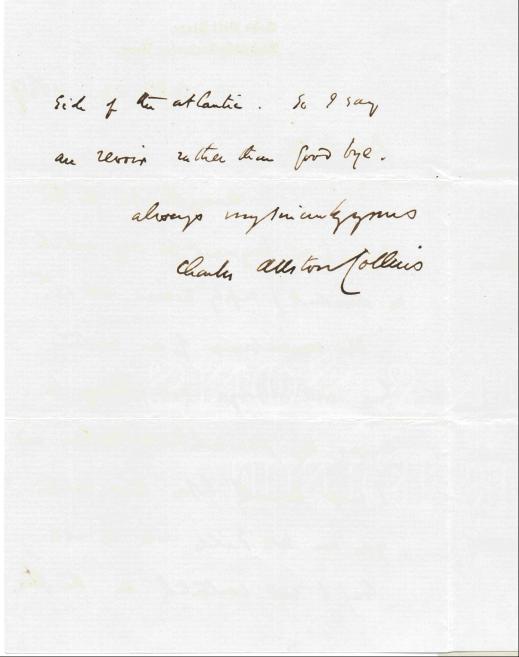 side of the atlantic. So I say
au revoir rather than good bye.
always very sincerely yours
Charles Allston Collins